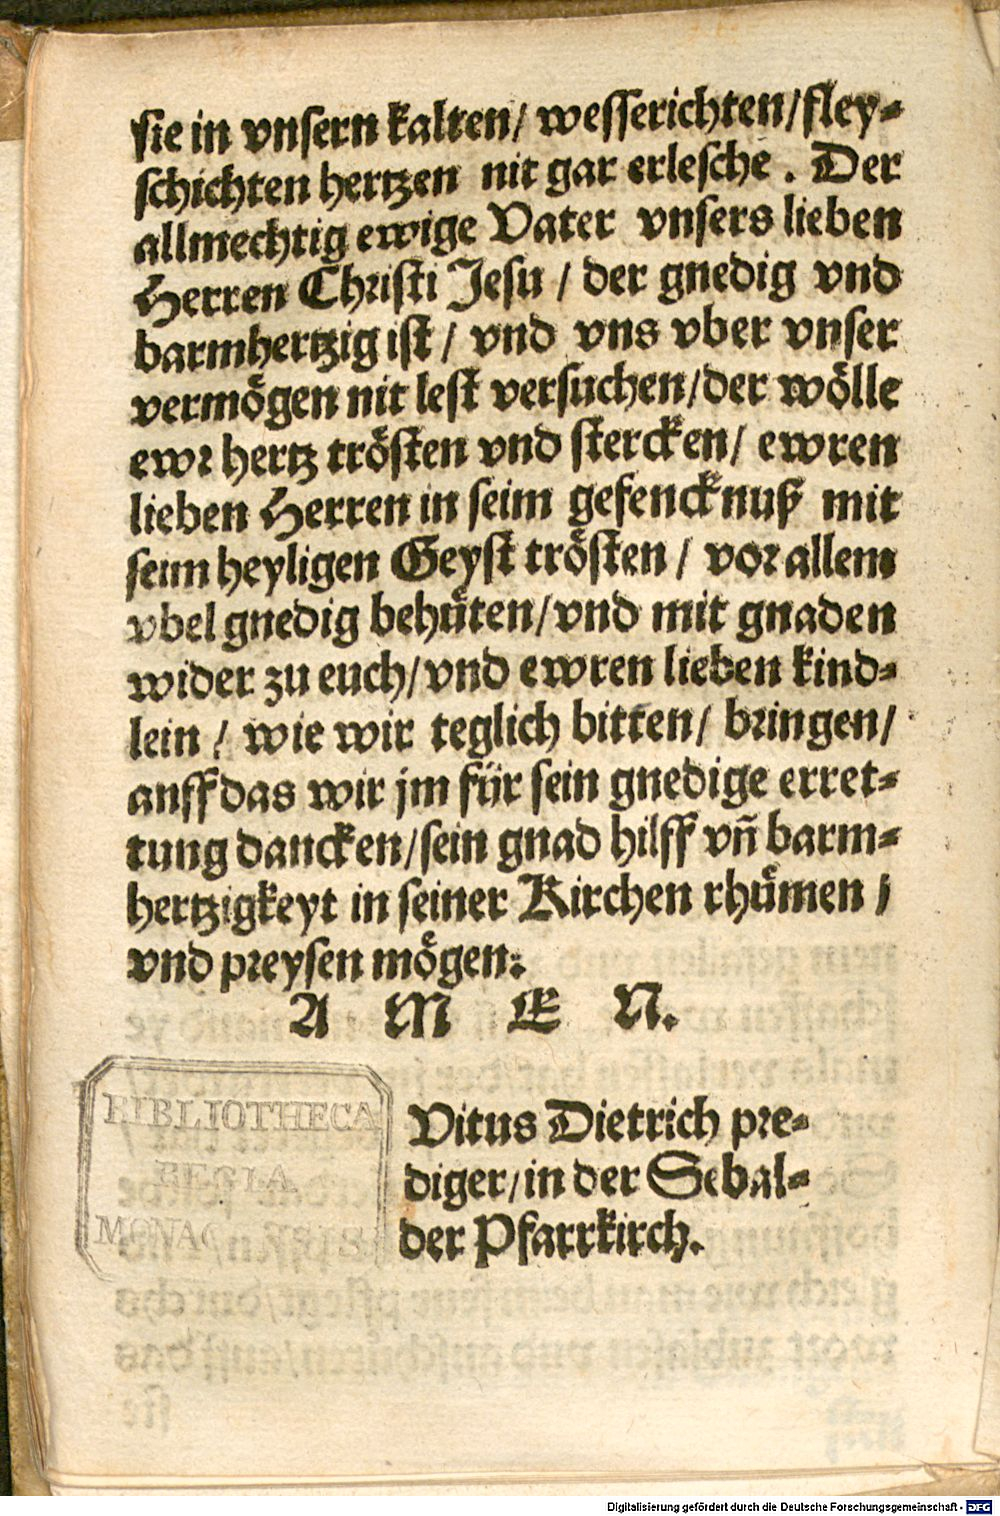 sie in vnsern kalten/ wesserichten/fley-
schichten hertzen nit gar erlesche. Der
allmechtig ewige Vater vnsers lieben
Herren Christi Jesu / der gnedig vnd
barmhertzig ist / vnd vns vber vnser
vermögen nit lest versuchen/der wölle
ewr hertz trösten vnd stercken/ ewren
lieben Herren in seim gefencknuß mit
seim heyligen Geyst trösten / vor allem
vbel gnedig behüten/vnd mit gnaden
wider zu euch/vnd ewren lieben kind-
lein / wie wir teglich bitten/ bringen/
auff das wir jm für sein gnedige erret-
tung dancken/sein gnad hilff vñ barm-
hertzigkeyt in seiner Kirchen rhümen /
vnd preysen mögen.
A M E N.
Vitus Dietrich pre-
diger/in der Sebal-
der Pfarrkirch.
BIBLIOTHECA
REGIA
MONACENSIS
Digitalisierung gefördert durch die Deutsche Forschungsgemeinschaft - DFG